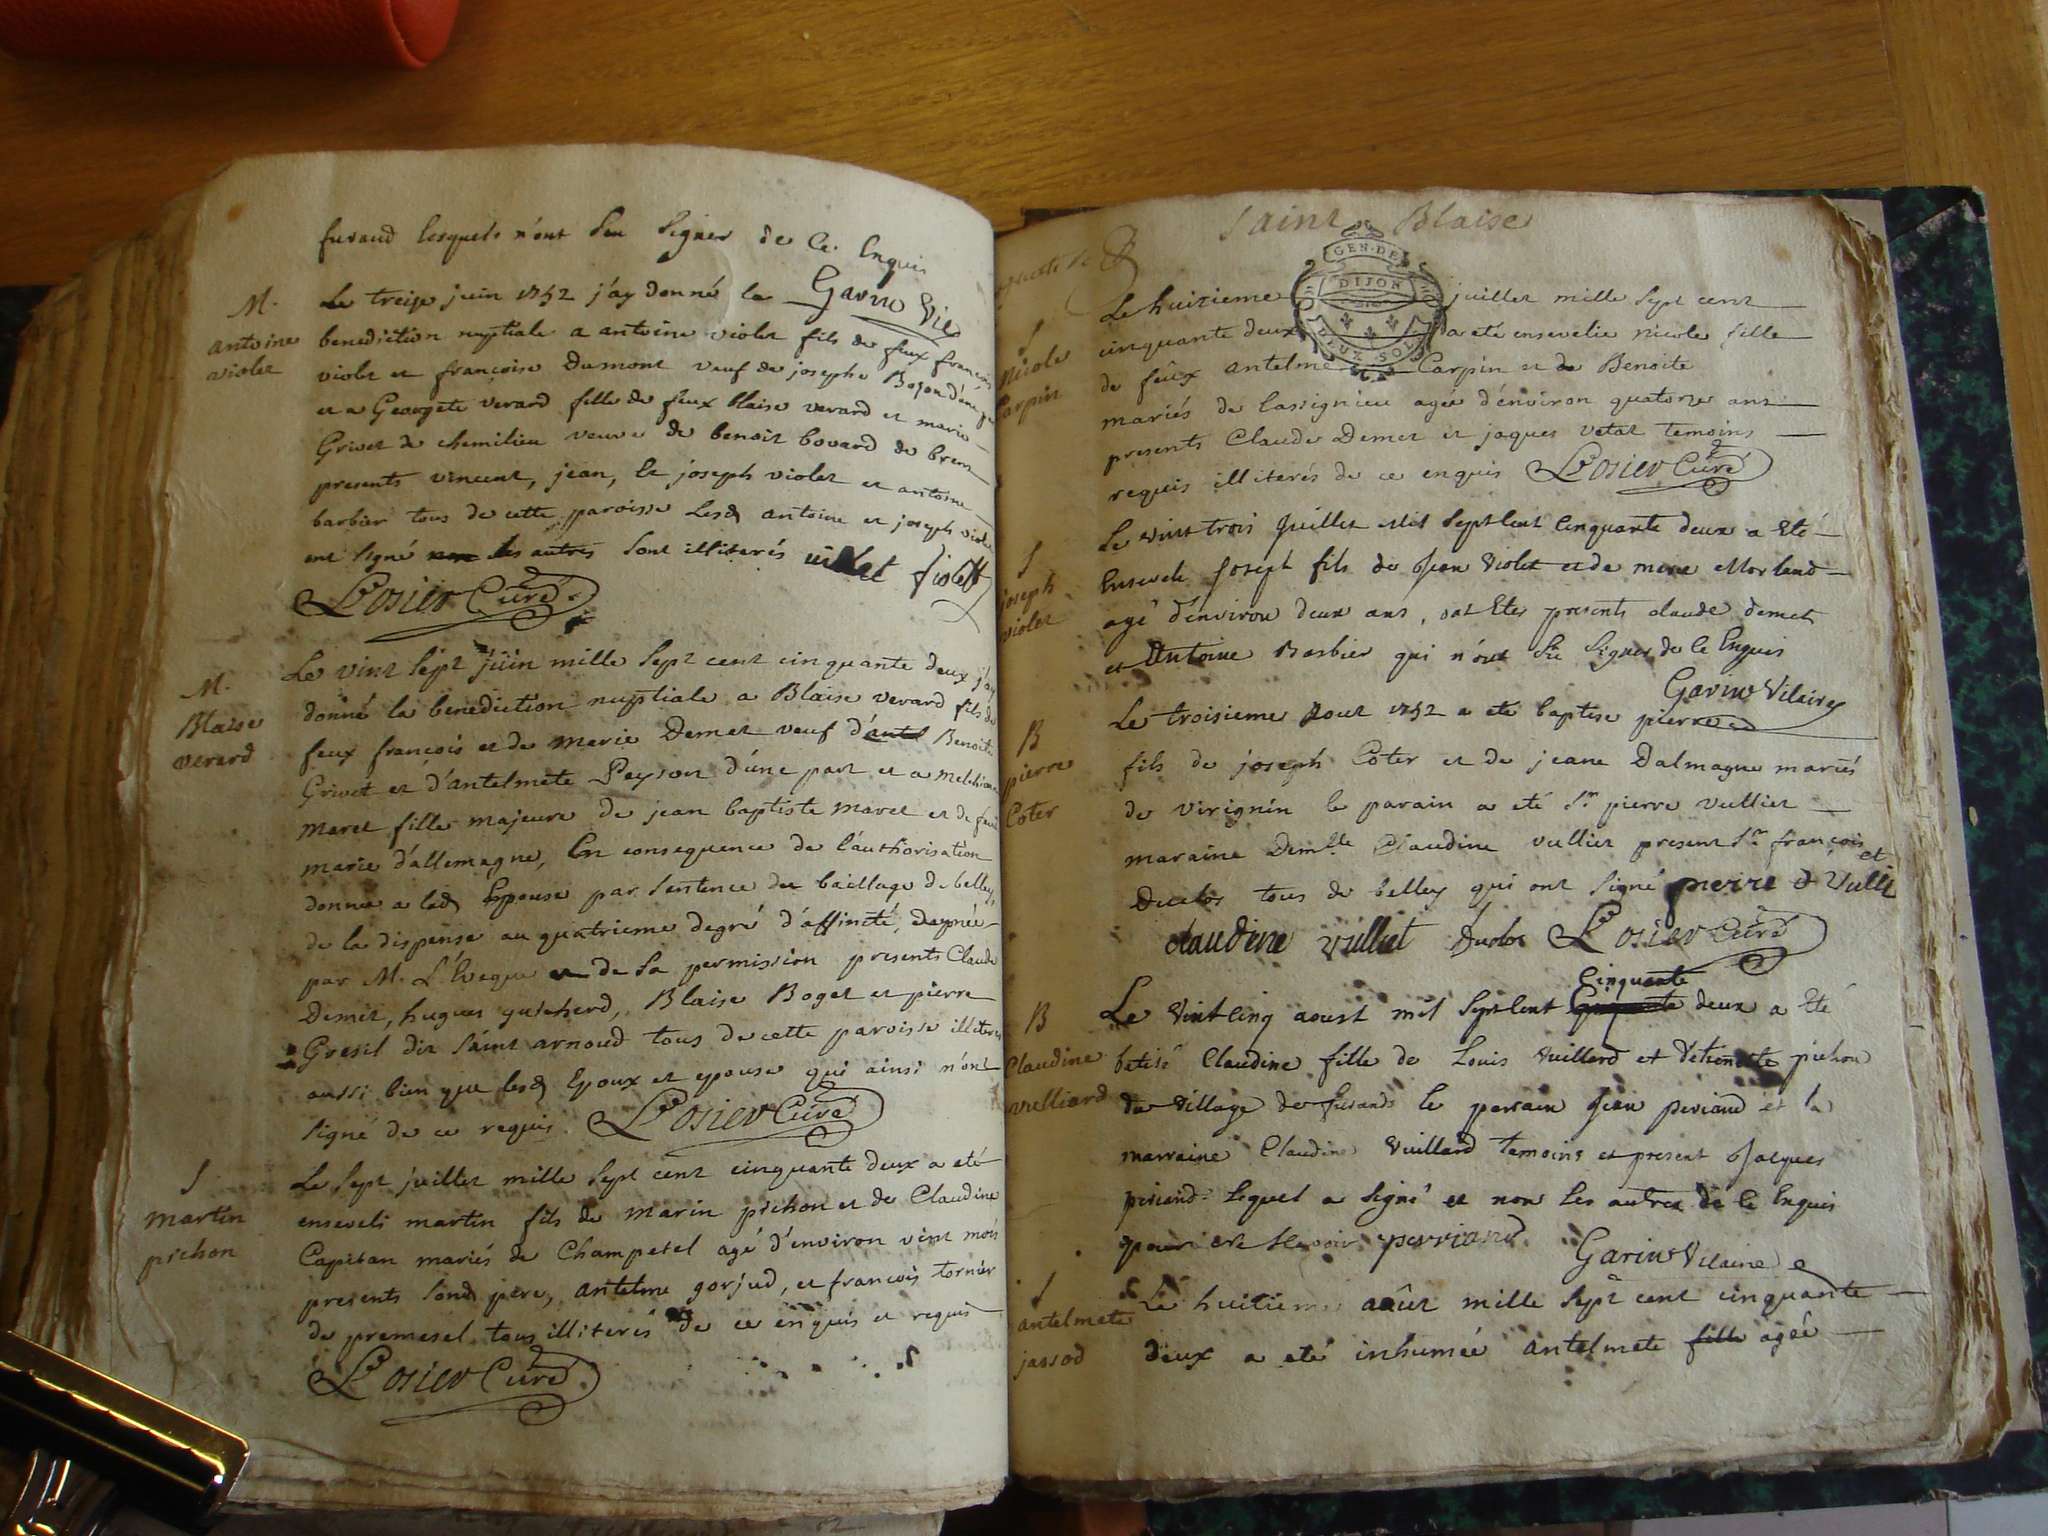 furand lesquels n'ont seu signer de ce enquis
Garin Vic
M.
antoine
violet
Le treise juin 1752 j'ay donné la
benediction nuptiale a antoine violet fils de feux françois
violet et françoise Dumont veuf de josephe Bozon d'une pa
et a Georgete verard fille de feux blaise verard et marie
Grivet de chemilieu veuve de benoit bovard de brens
presents vincent, jean, et joseph violet et antoine
barbier tous de cette paroisse lesd antoine et joseph viole
ont signé non les autres sont illiterés violet violet
L'Osier Curé
M.
Blaise
verard
Le vint sept juin mille sept cent cinquante deux j'ay
donné la benediction nuptiale a Blaise verard fils de
feux françois et de marie Demet veuf d'antel Benoite
Grivet et d'antelmete Peyson d'une part et a melchion
maret fille majeure de jean baptiste maret et de feue
marie d'allemagne, En consequence de l'authorisation
donnée a lad Epouse par sentence du baillage de belley,
de la dispense au quatrieme degré d'affinité, Donnée
par M. L'Eveque et de sa permission presents Claude
Demet, hugues guicherd, Blaise Boget et pierre
Gresil dit saint arnoud tous de cette paroisse illiteres
aussi bien que lesd Epoux et epouse qui ainsi n'ont
signé de ce requis L'Osier Curé
S
martin
pichon
Le sept juillet mille sept cent cinquante deux a eté
enseveli martin fils de marin pichon et de Claudine
Capitan mariés de Champetel agé d'environ vint mois
presents sond pere, antelme gorjud, et françois tornier
de premesel tous illiterés de ce enquis et requis
L'Osier Curé
Saint Blaise
GEN. DE
DIJON
DEUX SOLS
S
Nicole
Carpin
Le huitieme juillet mille sept cent
cinquante deux a eté ensevelie nicole fille
de feux antelme Carpin et de Benoite
mariés de lassignieu agée d'environ quatorze ans
presents Claude Demet et jaques vetat temoins
requis illiterés de ce enquis L'Osier Curé
S
joseph
violet
Le vint trois juillet mil sept cent cinquante deux a eté
Enseveli joseph fils de jean violet et de marie Morland
agé d'environ deux ans, ont Etes presents claude demet
et Antoine Barbier qui n'ont sü signer de ce Enquis
Garin Vicaire
B
pierre
Coter
Le troisieme aout 1752 a eté baptise pierre
fils de joseph Coter et de jeane Dalmagne mariés
de virignin le parain a eté Sr pierre vullier
maraine Demlle Claudine vullier present Sr françois
Duclos tous de belley qui ont signé pierre vulliet
claudine vulliet Duclos L'Osier Curé
B
Claudine
vulliard
Cinquante
Le vint cinq aoust mil sept cent Cinquante deux a Eté
betisé Claudine fille de Louis Vuillard et d'étiennette pichon
du village de furand le parain jean periand et la
marraine Claudine Vuillard temoins et present Jacques
periand lequel a signé et non les autres de ce Enquis
pour ne le scavoir perriand
Garin Vicaire
S
antelmete
jassod
Le huitieme aoûst mille sept cent cinquante
deux a eté inhumée antelmete fille agée